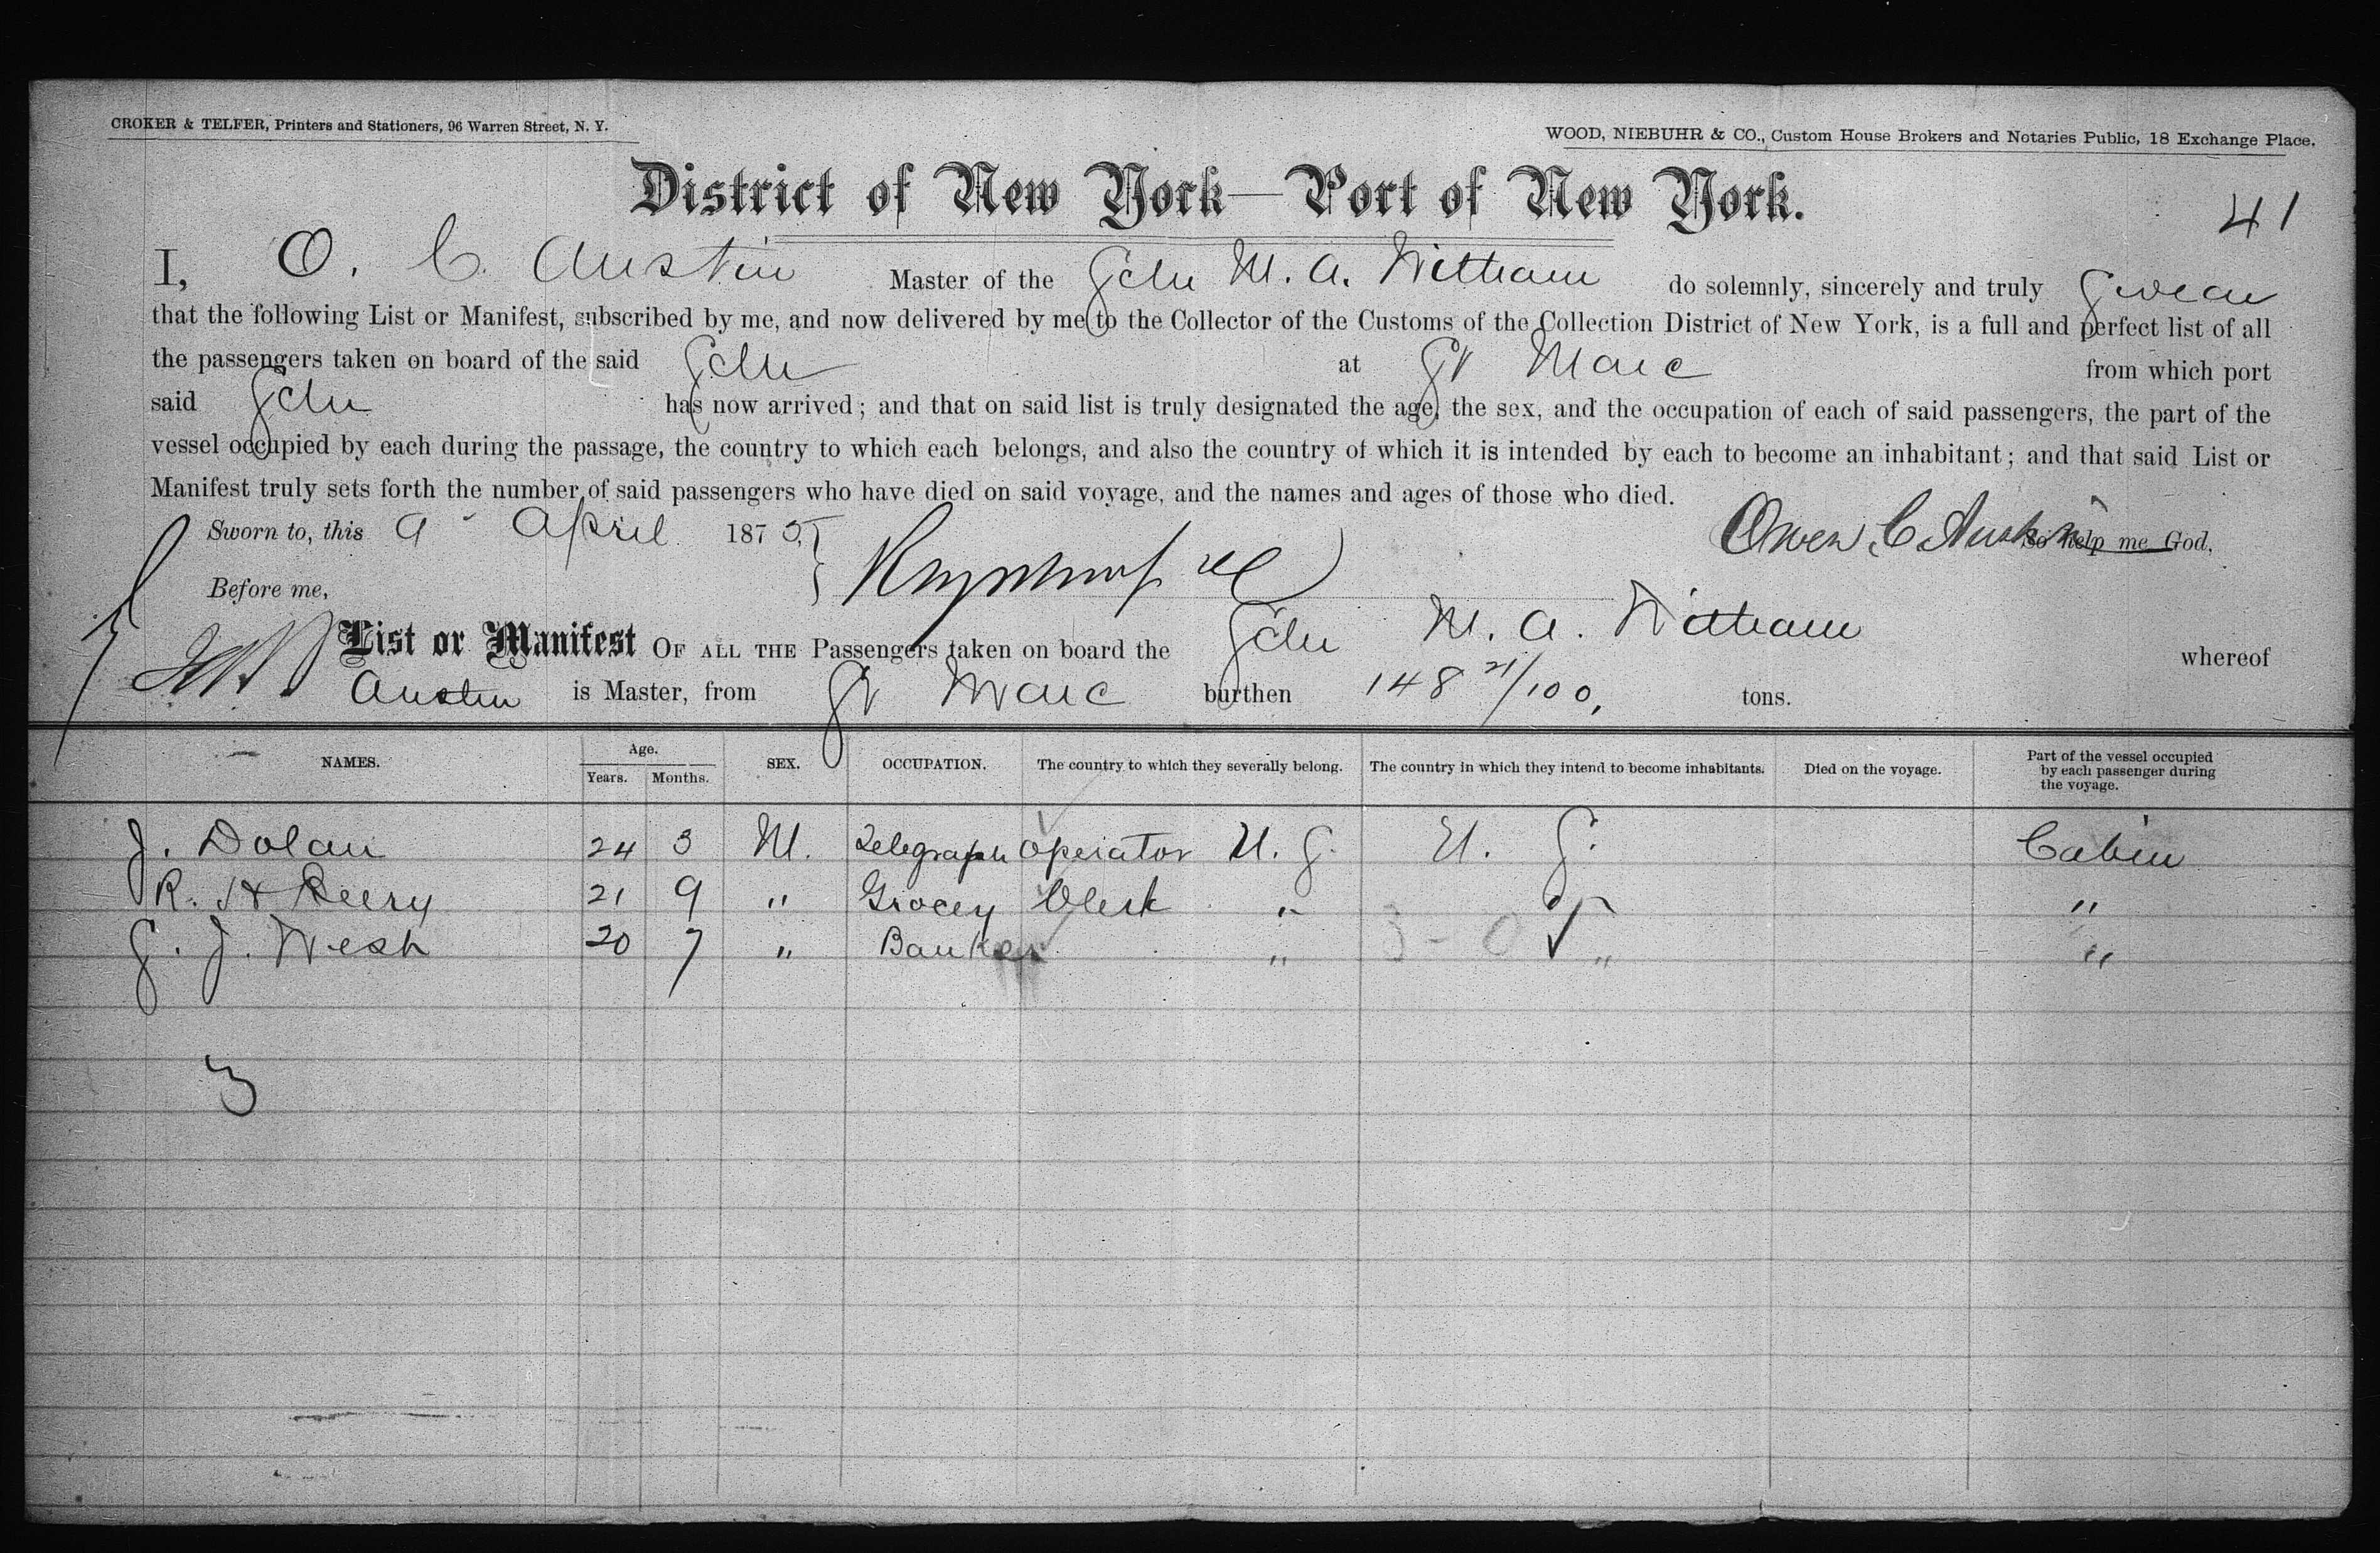 CROKER & TELFER, Printers and Stationers, 96 Warren Street, N. Y.
WOOD, NIEBUHR & CO., Custom House Brokers and Notaries Public, 18 Exchange Place.
District of New York—Port of New York.
41
I, O. C. Austin Master of the Schr M. A. Witham do solemnly, sincerely and truly Swear
that the following List or Manifest, subscribed by me, and now delivered by me to the Collector of the Customs of the Collection District of New York, is a full and perfect list of all
the passengers taken on board of the said Schr at St Marc from which port
said Schr has now arrived; and that on said list is truly designated the age, the sex, and the occupation of each of said passengers, the part of the
vessel occupied by each during the passage, the country to which each belongs, and also the country of which it is intended by each to become an inhabitant; and that said List or
Manifest truly sets forth the number of said passengers who have died on said voyage, and the names and ages of those who died.
Sworn to, this 9 April 1875 Owen C Austin So help me God,
Before me,
List or Manifest OF ALL THE Passengers taken on board the Schr M. A. Witham whereof
Austin is Master, from St Marc burthen 148 21/100, tons.
NAMES. Age. Years. Months. SEX. OCCUPATION. The country to which they severally belong. The country in which they intend to become inhabitants. Died on the voyage. Part of the vessel occupied by each passenger during the voyage.
J. Dolan 24 3 M. Telegraph Operator U. S. U. S. Cabin
R. H 21 9 " Grocery Clerk " "
S. J. 20 7 " Banker " " "
3 - 0
3